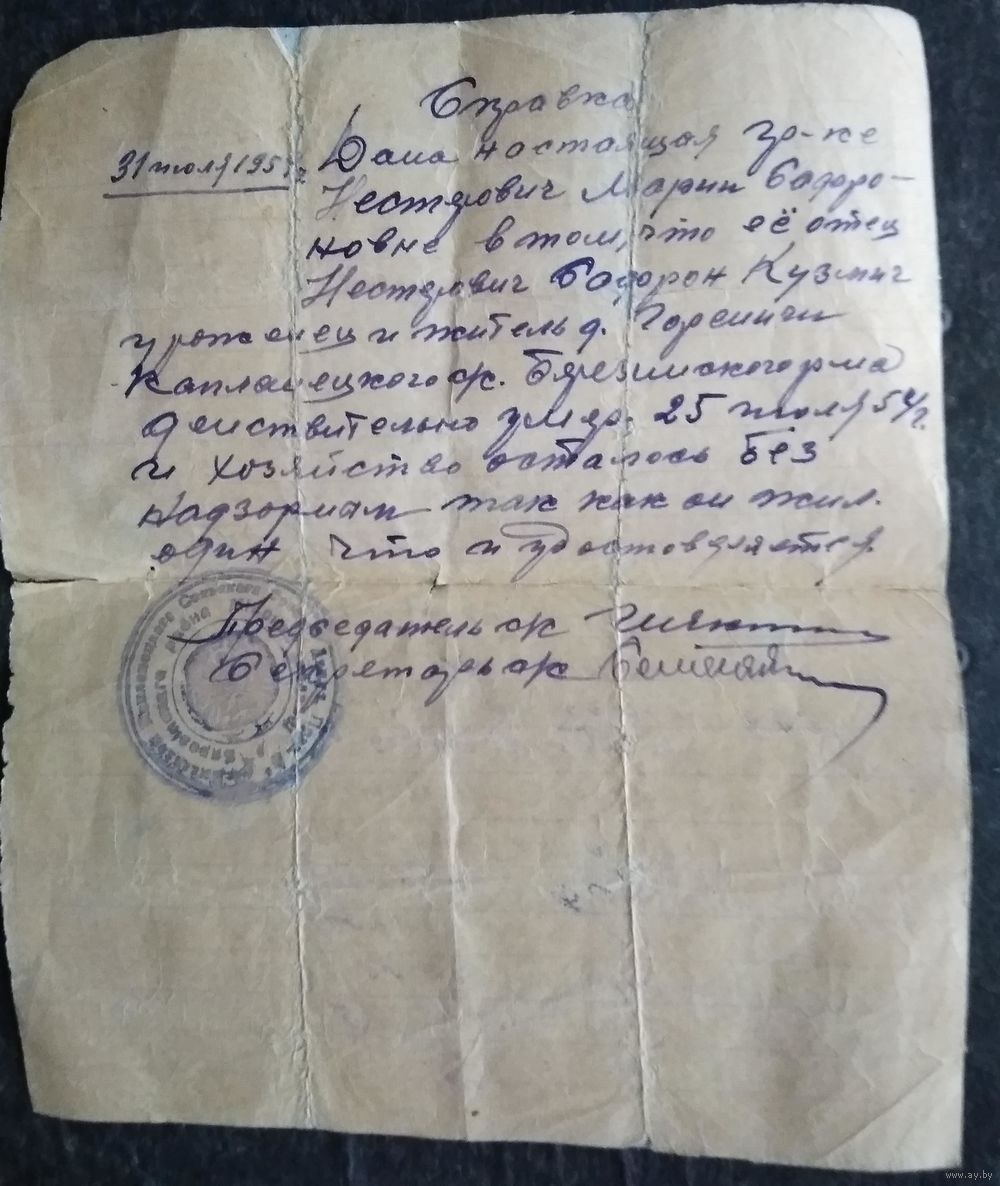 Справка
31 июля 195 г.
Дана настоящая гр-ке
Нестерович Марии Софро-
новне в том, что её отец
Нестерович Софрон Кузмич
урожнец и житель д.
Каплонецкого с/с. Березинского р-на
действительно умер. 25 июля 54 г.
и хозяйство осталось без
надзорным так как он жил.
один что и удостоверяется.
Председатель с/с
Секретарь с/с
www.ay.by